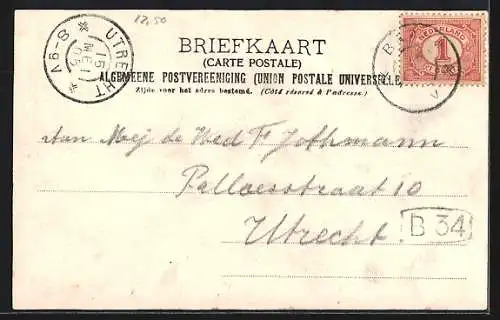 12,50
BRIEFKAART
(CARTE POSTALE)
ALGEMEENE POSTVEREENIGING (UNION POSTALE UNIVERSELLE)
Zijde voor het adres bestemd. (Côté réservé à l'adresse.)
UTRECHT
15
MEI
05
8-9V
NEDERLAND
1
Aan Mej de Wed F. Jothmann
Pallaesstraat 10
Utrecht.
B 34